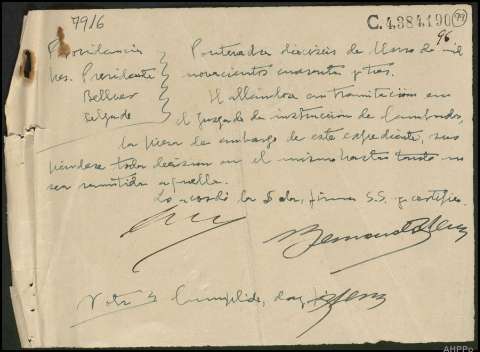 7916
C.4384190 (79)
96
Providencia Pontevedra dieciseis de Marzo de mil
Sres. Presidente novecientos cuarenta y tres.
Bellver Hallándose en tramitacion en
Delgado el juzgado de instruccion de Cambados,
la pieza de embargo de este expediente, sus
péndase toda decision en el mismo hasta tanto no
sea remitida aquella.
Lo acordó la Sala, firma S.S. y certifico.
Bernardo
Nota = Cumplido, doy fe
AHPPo